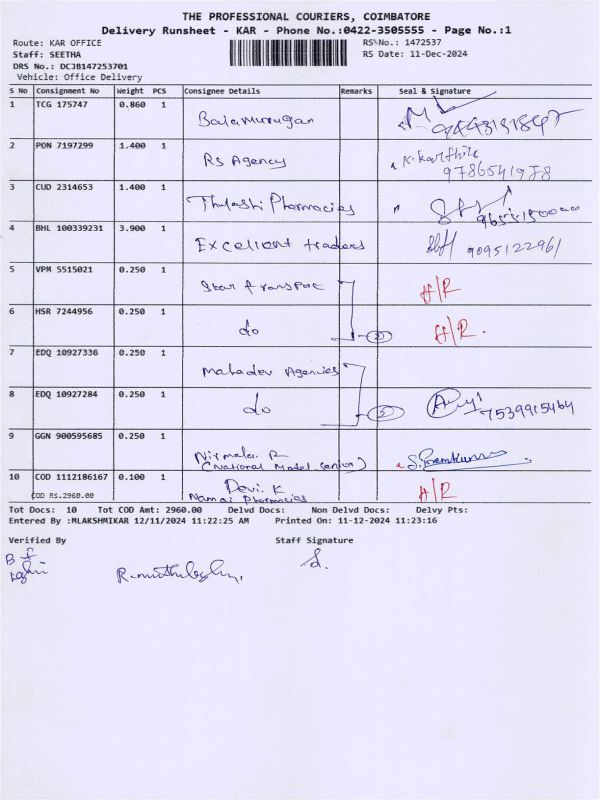 THE PROFESSIONAL COURIERS, COIMBATORE
Delivery Runsheet - KAR - Phone No.:0422-3505555 - Page No.:1
Route: KAR OFFICE
RS No.: 1472537
Staff: SEETHA
RS Date: 11-Dec-2024
DRS No.: DCJB147253701
Vehicle: Office Delivery
S No Consignment No Weight PCS Consignee Details Remarks Seal & Signature
1 TCG 175747 0.860 1 Balamurugan
2 PON 7197299 1.400 1 RS Agency K. Karthik
9786541978
3 CUD 2314653 1.400 1 Thulashi Pharmacies
4 BHL 100339231 3.900 1 Excellent traders 9095122961
5 VPM 5515021 0.250 1 Star transport H/R
6 HSR 7244956 0.250 1 do 2 H/R.
7 EDQ 10927336 0.250 1 Mahadev Agencies
8 EDQ 10927284 0.250 1 do 7539915464
9 GGN 900595685 0.250 1 Nirmala R
(National Model Senior) S. Premkumar
10 COD 1112186167 0.100 1 Devi. K H/R
COD Rs.2960.00 Namai Pharmacies
Tot Docs: 10 Tot COD Amt: 2960.00 Delvd Docs: Non Delvd Docs: Delvy Pts:
Entered By :MLAKSHMIKAR 12/11/2024 11:22:25 AM Printed On: 11-12-2024 11:23:16
Verified By Staff Signature